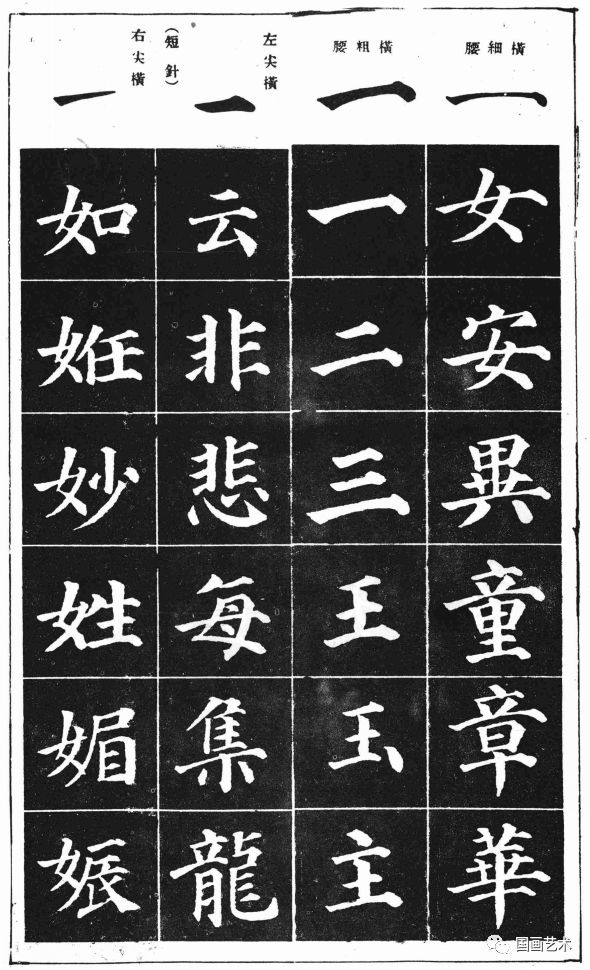 橫細腰
一
女安異童章華
橫粗腰
一
一二三王玉主
左尖橫
(短針)
一
云非悲每集龍
右尖橫
一
如姙妙姓媚娠
国画艺术